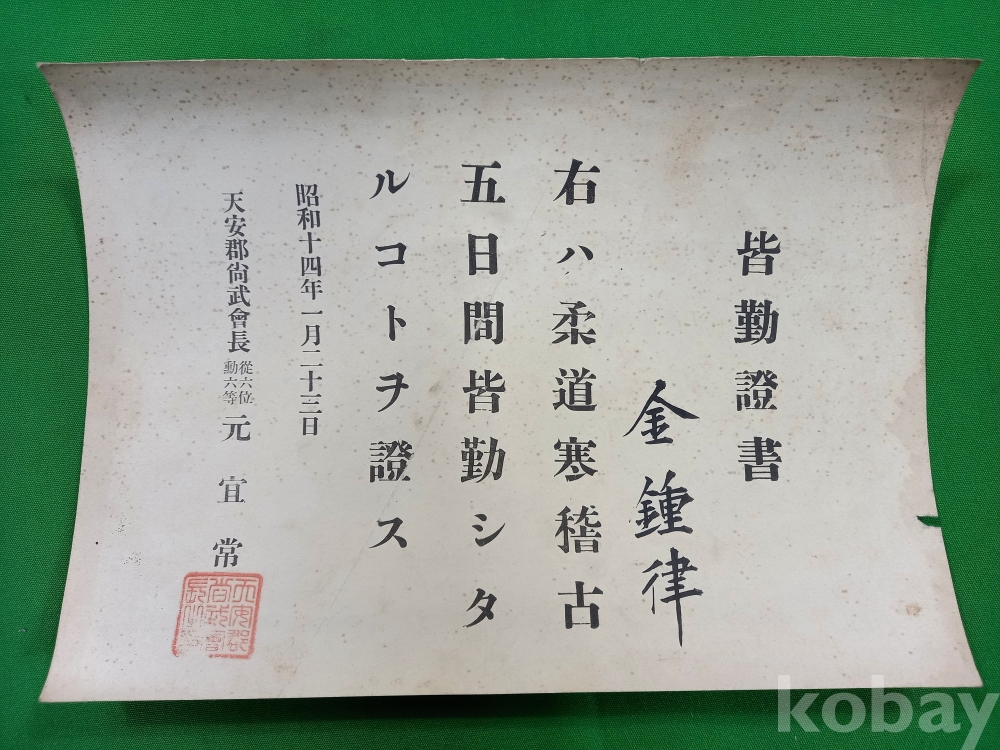 皆勤證書
金鍾律
右ハ柔道寒稽古
五日間皆勤シタ
ルコトヲ證ス
昭和十四年一月二十三日
天安郡尙武會長 從六位 勳六等 元宜常
天安郡
尙武會
kobay